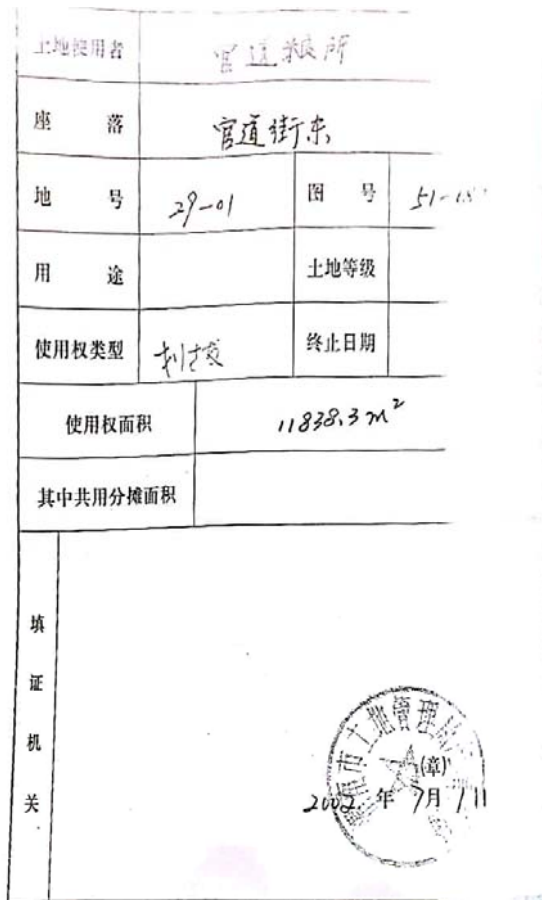 土地使用者 官道粮所
座落 官道街东
地号 29-01 图号 51-18
用途 土地等级
使用权类型 划拨 终止日期
使用权面积 11838.3m²
其中共用分摊面积
填证机关
市土地管理局
(章)
2002年7月11